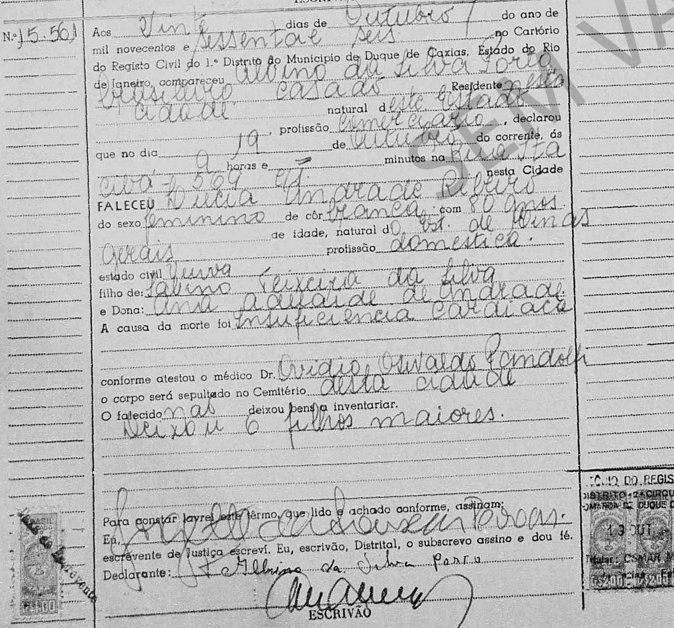 N.º 15.561
Aos Vinte dias de Outubro do ano de
mil novecentos e sessenta e seis no Cartório
do Registo Civil do 1.º Distrito do Município de Duque de Caxias, Estado do Rio
de Janeiro, compareceu Albino da Silva Porto
brasileiro casado Residente nesta
cidade natural deste Estado
, profissão Comerciário, declarou
que no dia 19 de Outubro do corrente, ás
9 horas e minutos na Rua Ita
cibá 564 nesta Cidade
FALECEU Lucia Andrade Ribeiro
do sexo feminino de côr branca, com 80 anos
de idade, natural do Est. de Minas
Gerais profissão domestica.
estado civil Viuva
filho de: Sabino Teixeira da Silva
e Dona: Ana Adelaide de Andrade
A causa da morte foi Insuficiencia Cardiaca
conforme atestou o médico Dr. Ovidio Osvaldo Pandolfi
o corpo será sepultado no Cemitério desta cidade
O falecido não deixou bens a inventariar.
Deixou 6 filhos maiores.
Para constar lavrei êste têrmo, que lido e achado conforme, assinam;
Eu,
escrevente de Justiça escreví. Eu, escrivão, Distrital, o subscrevo assino e dou fé.
Declarante: Albino da Silva Porto
ESCRIVÃO
SEM VA
BRASIL
DO REGIS
DISTRITO
DUQUE D
OUT